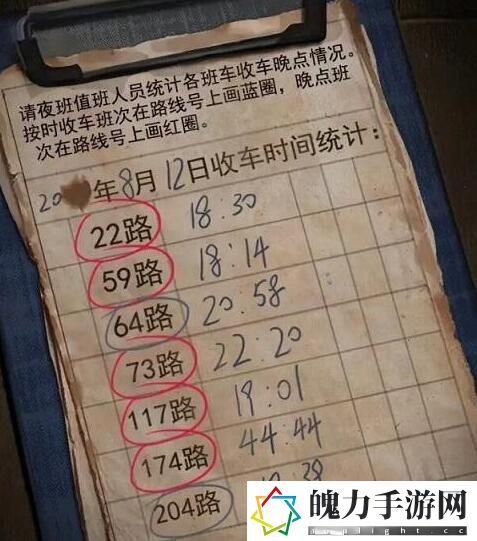 请夜班值班人员统计各班车收车晚点情况。
按时收车班次在路线号上画蓝圈，晚点班
次在路线号上画红圈。
20 年8月12日收车时间统计：
22路 18:30
59路 18:14
64路 20:58
73路 22:20
117路 19:01
174路 44:44
204路
魄力手游网
www.plight.cc